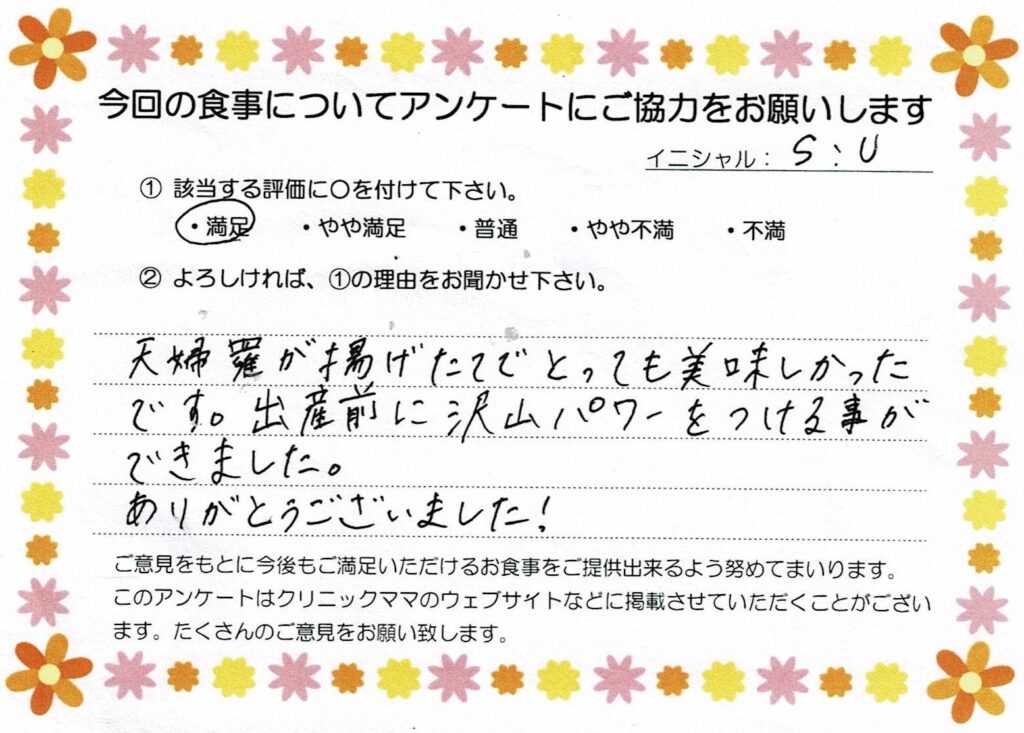 今回の食事についてアンケートにご協力をお願いします
イニシャル: S:U
① 該当する評価に〇を付けて下さい。
・満足 ・やや満足 ・普通 ・やや不満 ・不満
② よろしければ、①の理由をお聞かせ下さい。
天婦羅が揚げたてでとっても美味しかった
です。出産前に沢山パワーをつける事が
できました。
ありがとうございました!
ご意見をもとに今後もご満足いただけるお食事をご提供出来るよう努めてまいります。
このアンケートはクリニックママのウェブサイトなどに掲載させていただくことがござい
ます。たくさんのご意見をお願い致します。